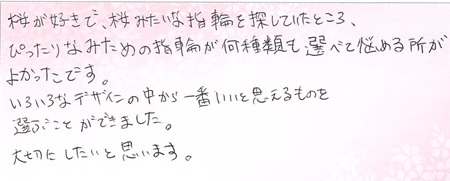 桜が好きで、桜みたいな指輪を探していたところ、
ぴったりなみための指輪が何種類も選べて悩める所が
よかったです。
いろいろなデザインの中から一番いいと思えるものを
選ぶことができました。
大切にしたいと思います。